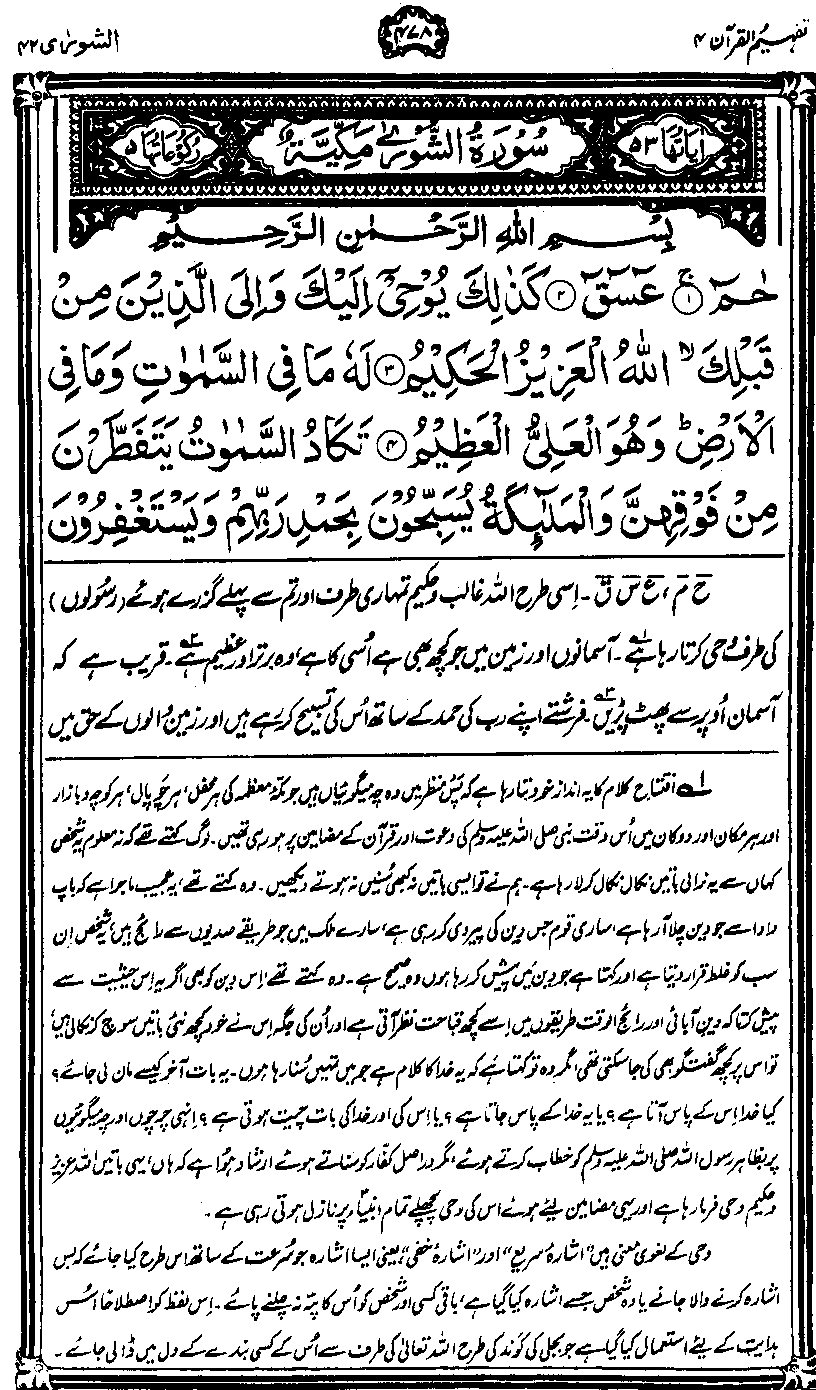 تفہیم القرآن ۴
۴۷۸
الشورٰی ۴۲
اٰیاتھا ۵۳
سُوْرَۃُ الشُّوْرٰی مَکِّیَّۃٌ
رکوعاتھا ۵
بِسْمِ اللهِ الرَّحْمٰنِ الرَّحِیْمِ
حٰمٓ ۚ﴿۱﴾ عٓسٓقٓ ﴿۲﴾ کَذٰلِکَ یُوْحِیْۤ اِلَیْکَ وَاِلَی الَّذِیْنَ مِنْ
قَبْلِکَ ۙ اللهُ الْعَزِیْزُ الْحَکِیْمُ ﴿۳﴾ لَهٗ مَا فِی السَّمٰوٰتِ وَمَا فِی
الْاَرْضِ ؕ وَهُوَ الْعَلِیُّ الْعَظِیْمُ ﴿۴﴾ تَکَادُ السَّمٰوٰتُ یَتَفَطَّرْنَ
مِنْ فَوْقِهِنَّ وَالْمَلٰٓئِکَةُ یُسَبِّحُوْنَ بِحَمْدِ رَبِّهِمْ وَیَسْتَغْفِرُوْنَ
حٓ مٓ، عٓ سٓ قٓ۔ اِسی طرح اللہ غالب و حکیم تمہاری طرف اور تم سے پہلے گزرے ہوئے (رسولوں)
کی طرف وحی کرتا رہا ہے۱؎۔ آسمانوں اور زمین میں جو کچھ بھی ہے اُسی کا ہے، وہ برتر اور عظیم ہے۲؎۔ قریب ہے کہ
آسمان اُوپر سے پھٹ پڑیں۳؎۔ فرشتے اپنے رب کی حمد کے ساتھ اُس کی تسبیح کر رہے ہیں اور زمین والوں کے حق میں
۱؎ افتتاحِ کلام کا یہ انداز خود بتا رہا ہے کہ پس منظر میں وہ چہ میگوئیاں ہیں جو مکۂ معظمہ کی ہر محفل، ہر چوپال، ہر کوچہ و بازار
اور ہر مکان اور دوکان میں اُس وقت نبی صلی اللہ علیہ وسلم کی دعوت اور قرآن کے مضامین پر ہو رہی تھیں۔ لوگ کہتے تھے کہ نہ معلوم یہ شخص
کہاں سے یہ نرالی باتیں نکال نکال کر لا رہا ہے۔ ہم نے تو ایسی باتیں نہ کبھی سُنیں نہ ہوتے دیکھیں۔ وہ کہتے تھے، یہ عجیب ماجرا ہے کہ باپ
دادا سے جو دین چلا آ رہا ہے، ساری قوم جس دین کی پیروی کر رہی ہے، سارے ملک میں جو طریقے صدیوں سے رائج ہیں، یہ شخص اِن
سب کو غلط قرار دیتا ہے اور کہتا ہے جو دین میں پیش کر رہا ہوں وہ صحیح ہے۔ وہ کہتے تھے، اِس دین کو بھی اگر یہ اِس حیثیت سے
پیش کرتا کہ دینِ آبائی اور رائج الوقت طریقوں میں اِسے کچھ قباحت نظر آتی ہے اور اُن کی جگہ اِس نے خود کچھ نئی باتیں سوچ کر نکالی ہیں،
تو اس پر کچھ گفتگو بھی کی جا سکتی تھی، مگر وہ تو کہتا ہے کہ یہ خدا کا کلام ہے جو میں تمہیں سُنا رہا ہوں۔ یہ بات آخر کیسے مان لی جائے؟
کیا خدا اِس کے پاس آتا ہے؟ یا یہ خدا کے پاس جاتا ہے؟ یا اِس کی اور خدا کی بات چیت ہوتی ہے؟ اِنہی چرچوں اور چہ میگوئیوں
پر بظاہر رسول اللہ صلی اللہ علیہ وسلم کو خطاب کرتے ہوئے، مگر دراصل کفّار کو سناتے ہوئے ارشاد ہوا ہے کہ ہاں، یہی باتیں اللہ عزیز
و حکیم وحی فرما رہا ہے اور یہی مضامین لیے ہوئے اس کی وحی پچھلے تمام انبیاء پر نازل ہوتی رہی ہے۔
وحی کے لغوی معنی ہیں "اشارۂ سریع" اور "اشارۂ خفی"، یعنی ایسا اشارہ جو سُرعت کے ساتھ اس طرح کیا جائے کہ بس
اشارہ کرنے والا جانے یا وہ شخص جسے اشارہ کیا گیا ہے، باقی کسی اور شخص کو اُس کا پتہ نہ چلنے پائے۔ اِس لفظ کو اصطلاحاً اُس
ہدایت کے لیے استعمال کیا گیا ہے جو بجلی کی کوند کی طرح اللہ تعالیٰ کی طرف سے اُس کے کسی بندے کے دل میں ڈالی جائے۔